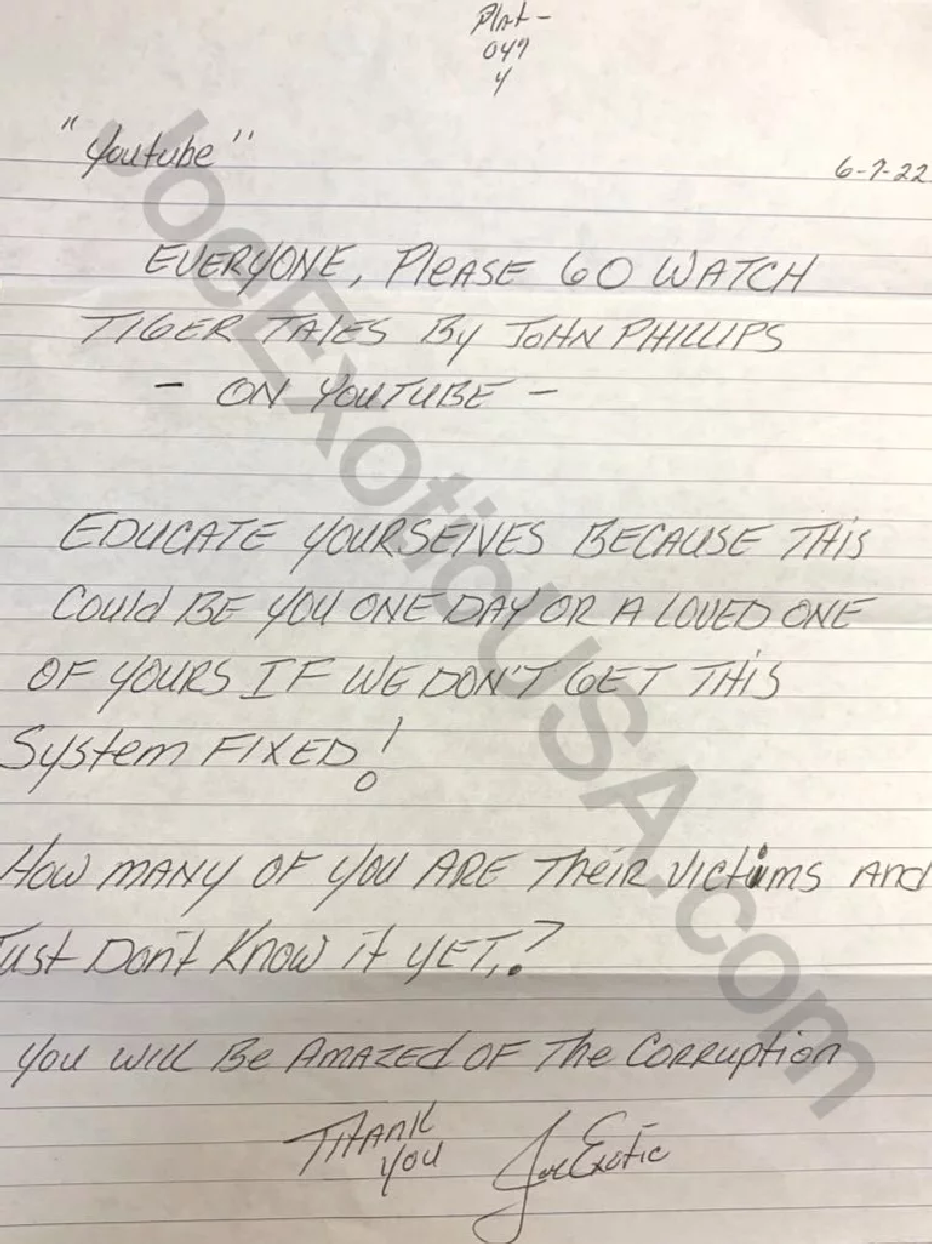 Plat -
049
4
"Youtube"
6-7-22
EVERYONE, PleASE GO WATCH
TIGER TAlES By JoHN PHILLIPS
- ON YOUTUBE -
EDUCATE YOURSElVES BECAUSE THiS
Could BE YOU ONE DAY OR A LOVED ONE
OF YOURS IF WE DON'T GET THiS
System FIXED!
How MANY OF YOU ARE TheiR victims And
Just Don't Know it YET,?
You will Be AmAZEd OF The CoRRuption
THANK
You
Joe Exotic
JoeExoticUSA.com